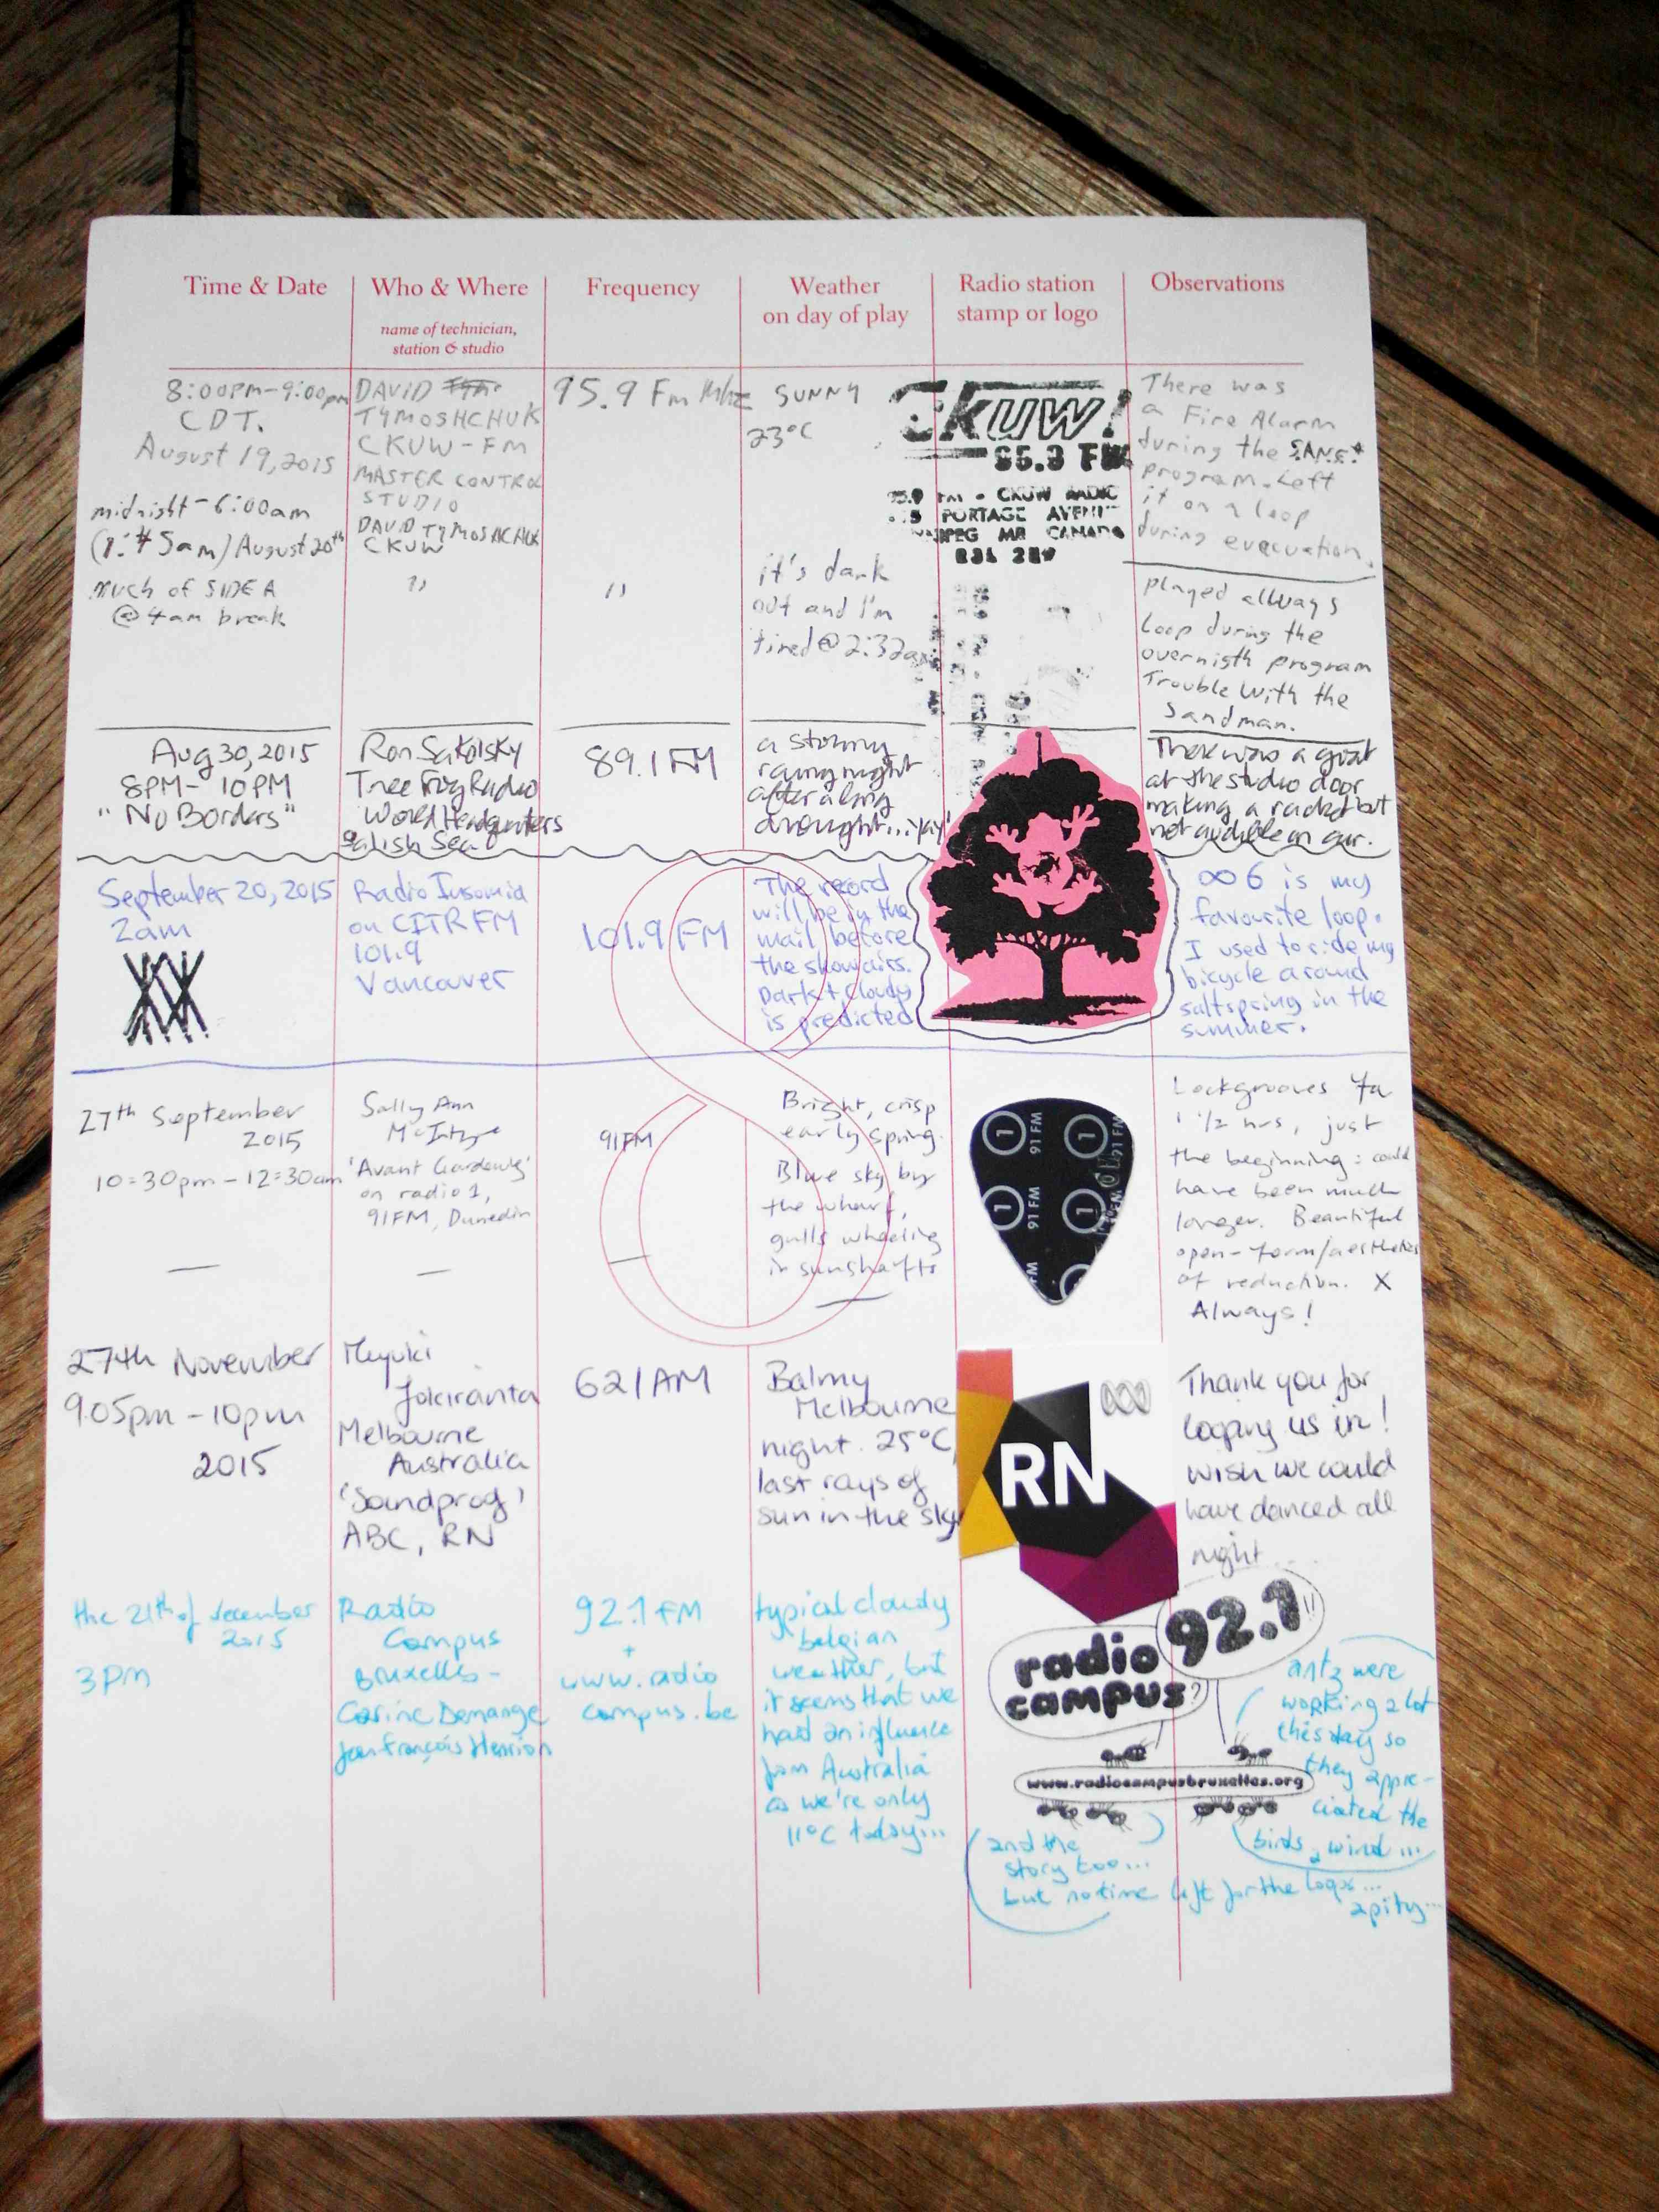 Time & Date
Who & Where
name of technician,
station & studio
Frequency
Weather
on day of play
Radio station
stamp or logo
Observations
8:00pm-9:00pm
CDT.
August 19, 2015
DAVID
TYMOSHCHUK
CKUW-FM
MASTER CONTROL
STUDIO
95.9 Fm Mhz
SUNNY
23°C
CKUW!
95.9 FM
95.9 FM - CKUW RADIO
PORTAGE AVENUE
WINNIPEG MB CANADA
There was
a Fire Alarm
during the SANS?
program. Left
it on a loop
during evacuation.
midnight-6:00am
August 20th
much of SIDE A
@ 4am break
DAVID TYMOSHCHUK
CKUW
"
"
it's dark
out and I'm
tired @ 2:32am
played allways
Loop during the
overnigth program
Trouble With the
Sandman.
Aug 30, 2015
8PM-10PM
"No Borders"
Ron Sakolsky
Tree Frog Radio
World Headquarters
Salish Sea
89.1 FM
a stormy
rainy night
after a long
drought...yay!
There was a goat
at the studio door
making a racket but
not audible on air.
September 20, 2015
2am
Radio Insomnia
on CITR FM
101.9
Vancouver
101.9 FM
The record
will be in the
mail before
the show airs.
Dark + Cloudy
is predicted
∞ 6 is my
favourite loop.
I used to ride my
bicycle around
saltspring in the
summer.
27th September
2015
10:30pm - 12:30am
—
Sally Ann
McIntyre
'Avant Gardening'
on radio 1,
91FM, Dunedin
—
91FM
—
Bright, crisp
early spring.
Blue sky by
the wharf,
gulls wheeling
in sunshafts
—
1 91 FM
Lockgrooves for
1 1/2 hrs, just
the beginning: could
have been much
longer. Beautiful
open-form/aesthetics
of reduction. X
Always!
27th November
9.05pm - 10pm
2015
Miyuki
Jokiranta
Melbourne
Australia
'Soundproof'
ABC, RN
621 AM
Balmy
Melbourne
night. 25°C,
last rays of
sun in the sky
RN
Thank you for
looping us in!
wish we could
have danced all
night...
the 21th of december
2015
3pm
Radio
Campus
Bruxelles -
Carine Demange
Jean François Henrion
92.1 FM
+
www.radio
campus.be
typical cloudy
belgian
weather, but
it seems that we
had an influence
from Australia
as we're only
11°C today...
radio 92.1
campus
www.radiocampusbruxelles.org
antz were
working a lot
this day so
they appre-
ciated the
birds, wind...
and the
story too...
but no time left for the loops...
a pity...